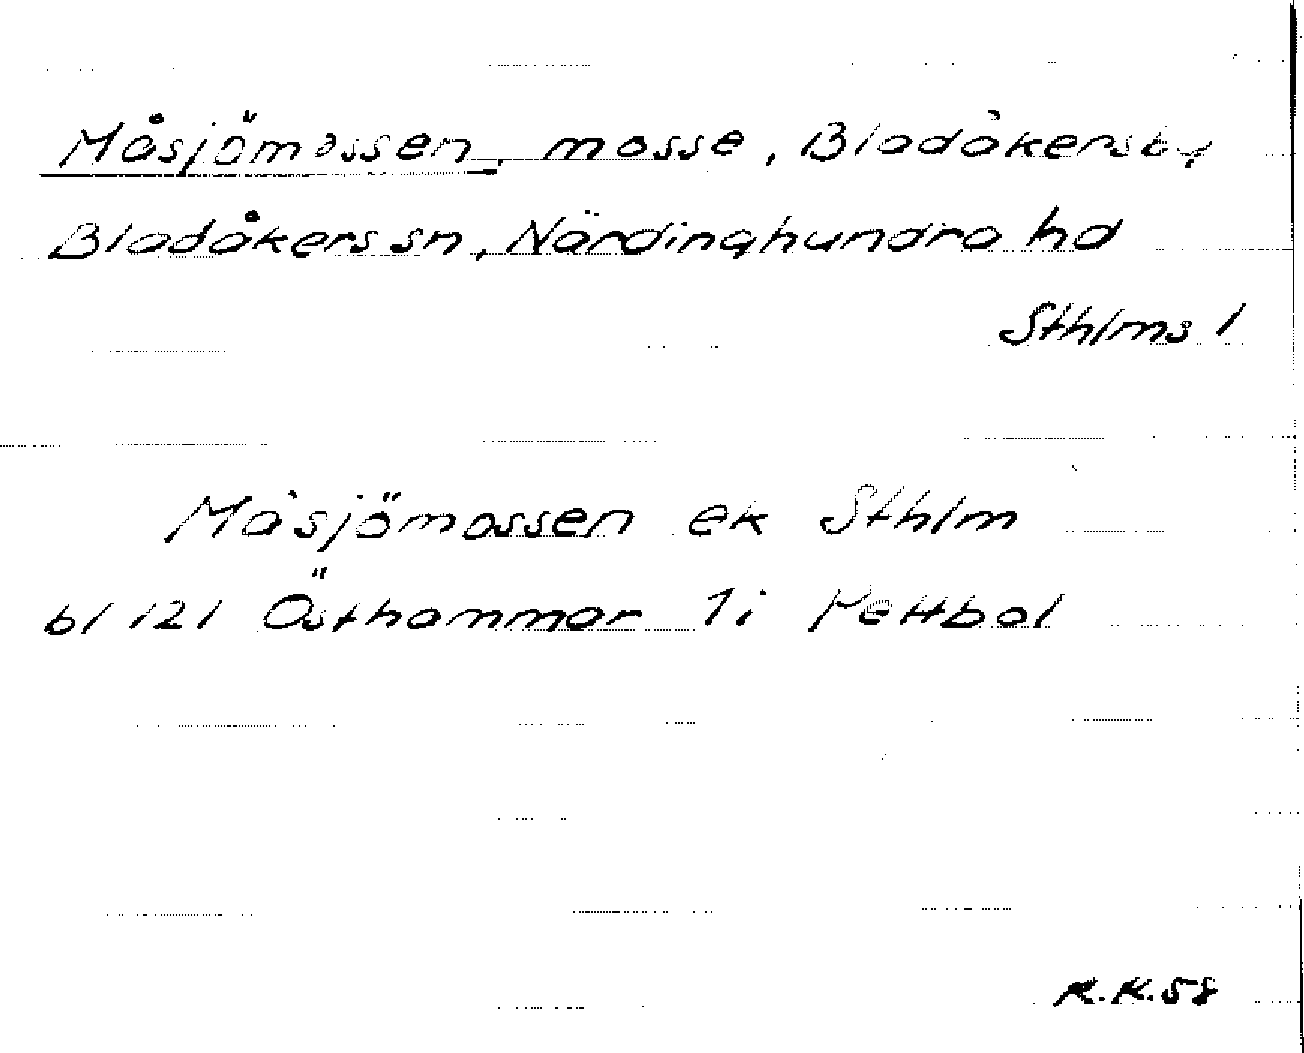 Måsjömossen, mosse, Bladåkersby
Bladåkers sn, Närdinghundra hd
Sthlms l
Måsjömossen ek Sthlm
bl 121 Östhammar 1i Kettbol
R.K.58